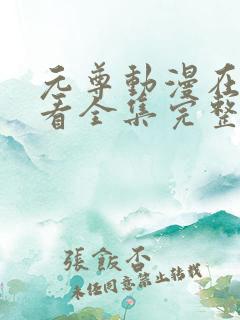 元尊動漫在
看全集完整
張飯否
未任同意禁止转载